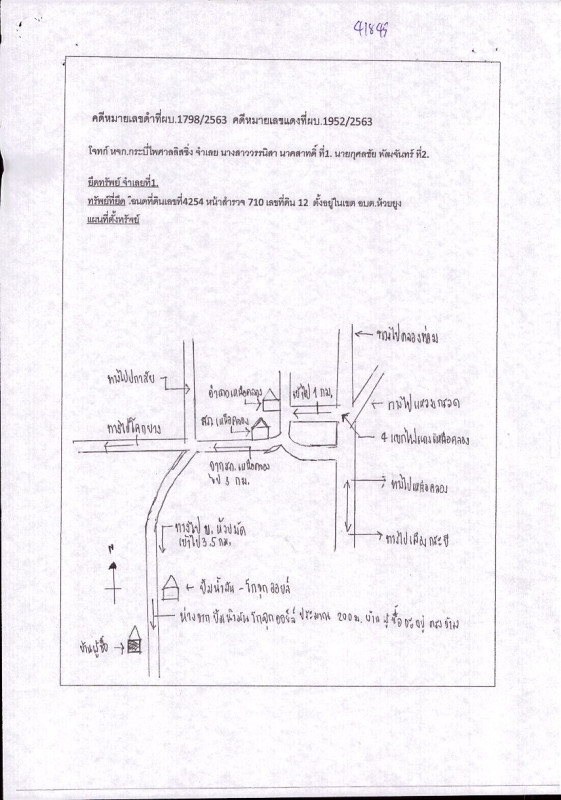 41849
คดีหมายเลขดำที่ผบ.1798/2563 คดีหมายเลขแดงที่ผบ.1952/2563
โจทก์ หจก.กระบี่ไพศาลลิสซิ่ง จำเลย นางสาววรรนิสา นาคสาทดิ์ ที่1. นายกุศลชัย พัฒจันทร์ ที่2.
ยึดทรัพย์ จำเลยที่1.
ทรัพย์ที่ยึด โฉนดที่ดินเลขที่4254 หน้าสำรวจ 710 เลขที่ดิน 12 ตั้งอยู่ในเขต อบต.ห้วยยูง
แผนที่ตั้งทรัพย์
ทางไปคลองท่อม
ทางไปปกาสัย
อำเภอเหนือคลอง
เข้าไป 1 กม.
ทางไปแหลมกรวด
สภ. เหนือคลอง
ทางไปโคกยาง
4 แยกไฟแดงเหนือคลอง
จากสภ. เหนือคลอง
ไป 3 กม.
ทางไปเหนือคลอง
ทางไป บ. ห้วยมัด
เข้าไป 3.5 กม.
ทางไปเมืองกระบี่
N
ปั๊มน้ำมัน - โกจุกออยล์
ห่างจาก ปั๊มน้ำมันโกจุกออยล์ ประมาณ 200 ม. บ้านผู้ซื้อจะอยู่
บ้านผู้ซื้อ